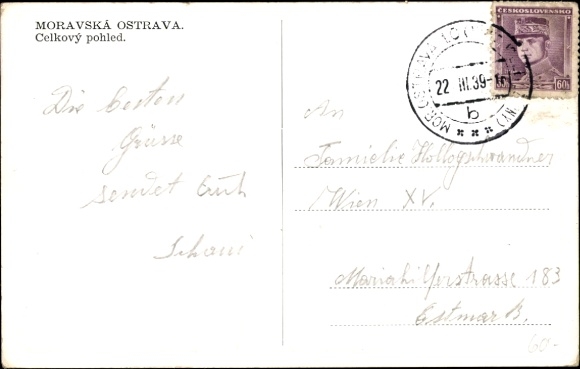 MORAVSKÁ OSTRAVA.
Celkový pohled.
ČESKOSLOVENSKO
60
MOR. OSTRAVA 1
22 III.39-1
b
Die besten
Grüsse
sendet Euch
An
Familie
Wien XV.
Mariahilferstrasse 183
Ostmark.
60-